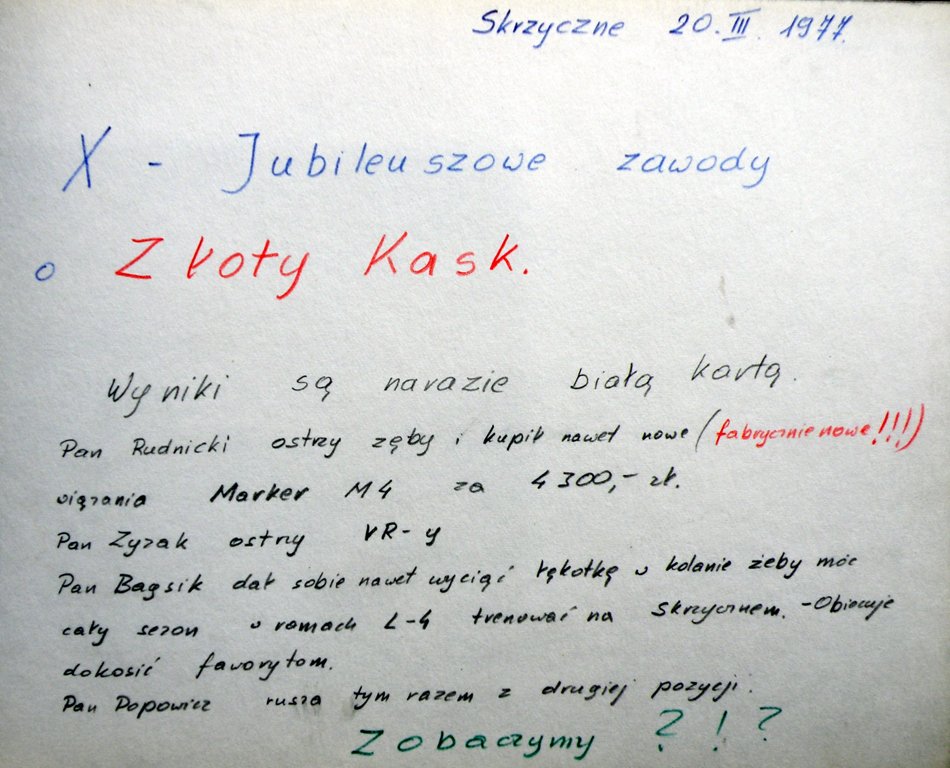 Skrzyczne 20.III. 1977.
X - Jubileuszowe zawody
o Złoty Kask.
Wyniki są narazie białą kartą.
Pan Rudnicki ostrzy zęby i kupił nawet nowe (fabrycznie nowe!!!)
wiązania Marker M4 za 4300,- zł.
Pan Zyzak ostrzy VR-y
Pan Bagsik dał sobie nawet wyciąć łękotkę w kolanie żeby móc
cały sezon w ramach L-4 trenować na Skrzycznem. - Obiecuje
dokosić faworytom.
Pan Popowicz rusza tym razem z drugiej pozycji.
Zobaczymy ?!?